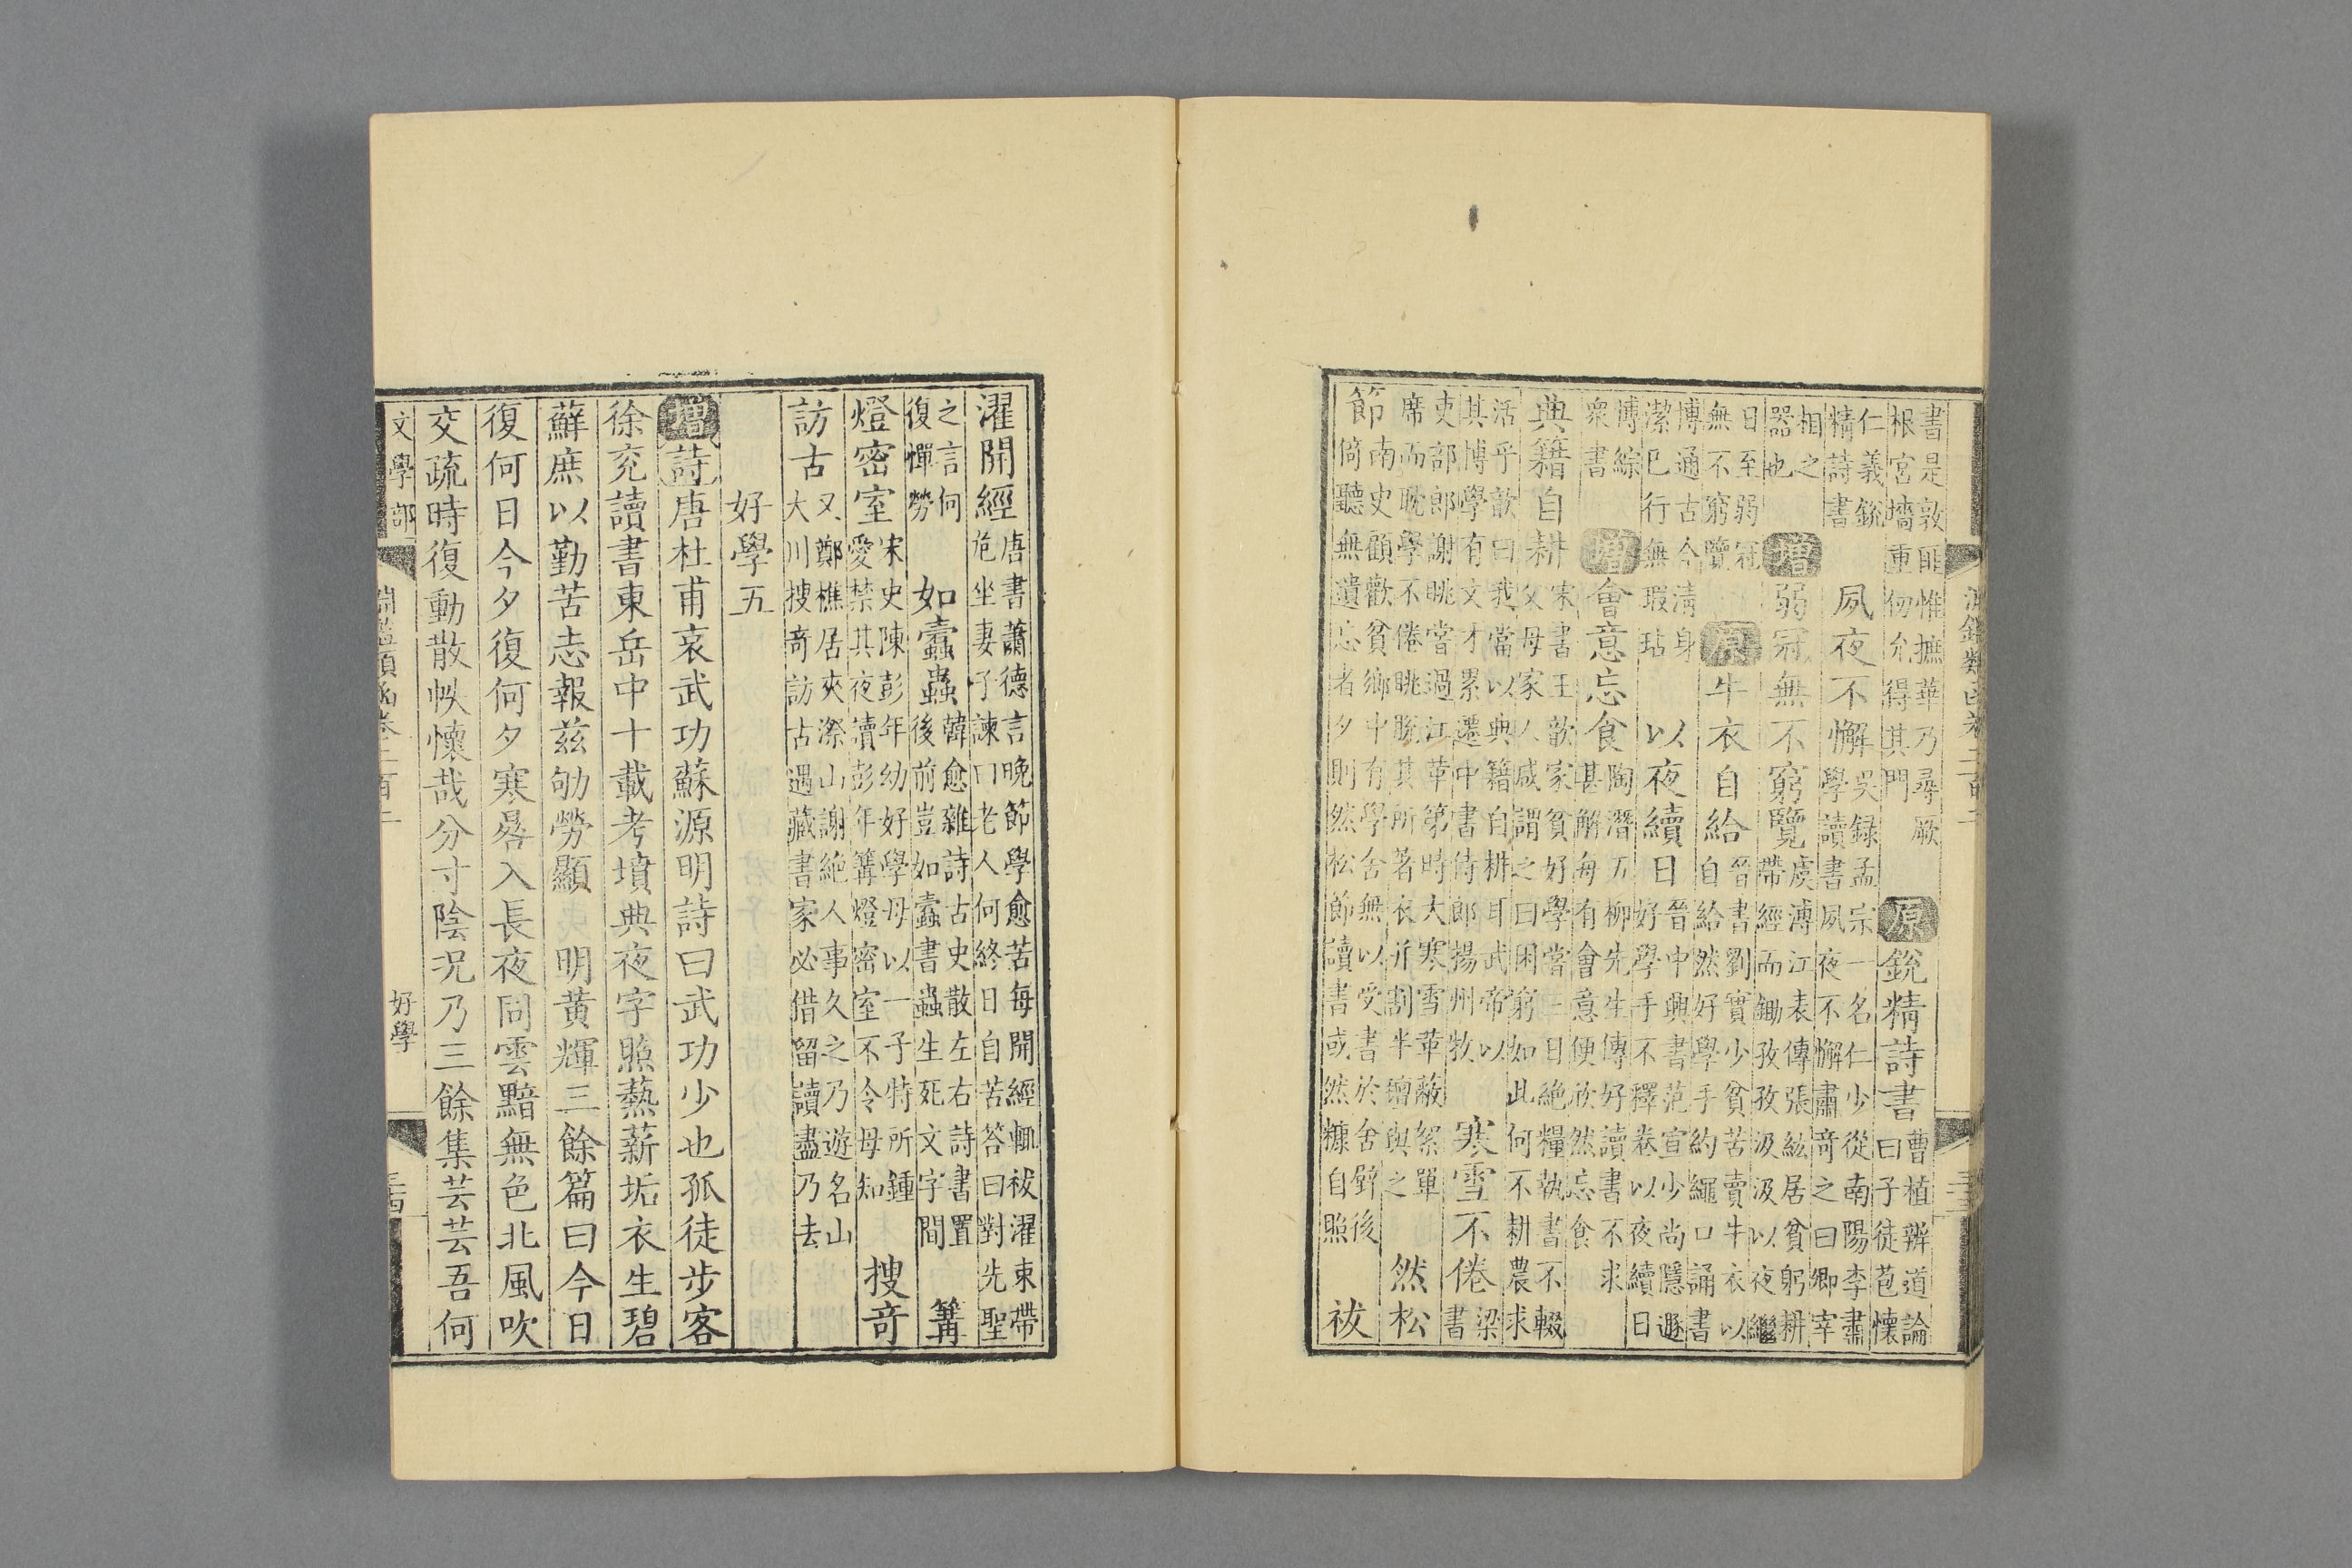 淵鑑類函卷二百二
書是敦匪惟摭華乃尋厥根宮墻重仞允得其門 原 銳精詩書 曹植辨道論曰子徒苞懷
仁義銳精詩書 夙夜不懈 吳録孟宗一名仁少從南陽李肅學讀書夙夜不懈肅奇之曰卿宰
相之器也 增 弱冠無不窮覽 虞溥江表傳張紘居貧躬耕帶經而鋤孜孜汲汲以夜繼
日至弱冠無不窮覽 原 牛衣自給 晉書劉實少貧苦賣牛衣以自給然好學手約繩口誦書
博通古今清身潔巳行無瑕玷 以夜續日 晉中興書范宣少尚隱遯好學手不釋卷以夜續日
博綜衆書 增 會意忘食 陶潛五柳先生傳好讀書不求甚解每有會意便欣然忘食
典籍自耕 宋書王歆家貧好學嘗三日絶糧執書不輟父母家人咸謂之曰困窮如此何不耕農求
活乎歆曰我當以典籍自耕耳武帝以其博學有文才累遷中書侍郎揚州牧 寒雪不倦 梁書
吏部郎謝眺嘗過江革第時大寒雪革蔽絮單席而耽學不倦眺脫其所著衣并割半氊與之 然松
節 南史顧歡貧鄉中有學舍無以受書於舍壁後倚聽無遺忘者夕則然松節讀書或然糠自照 祓
濯開經 唐書蕭德言晚節學愈苦每開經輒祓濯束帶危坐妻子諫曰老人何終日自苦荅曰對先聖
之言何復憚勞 如蠹蟲 韓愈雜詩古史散左右詩書置後前豈如蠹書蟲生死文字間 篝
燈密室 宋史陳彭年幼好學母以一子特所鍾愛禁其夜讀彭年篝燈密室不令母知 搜竒
訪古 又鄭樵居夾漈山謝絶人事久之乃遊名山大川搜竒訪古過藏書家必借留讀盡乃去
好學五
增 詩 唐杜甫哀武功蘇源明詩曰武功少也孤徒步客
徐兖讀書東岳中十載考墳典夜字照爇薪垢衣生碧
蘚庶以勤苦志報茲劬勞顯 明黃輝三餘篇曰今日
復何日今夕復何夕寒晷入長夜同雲黯無色北風吹
交疏時復動散帙懷哉分寸陰况乃三餘集芸芸吾何
文學部 淵鑑類函卷二百二 好學 三十四